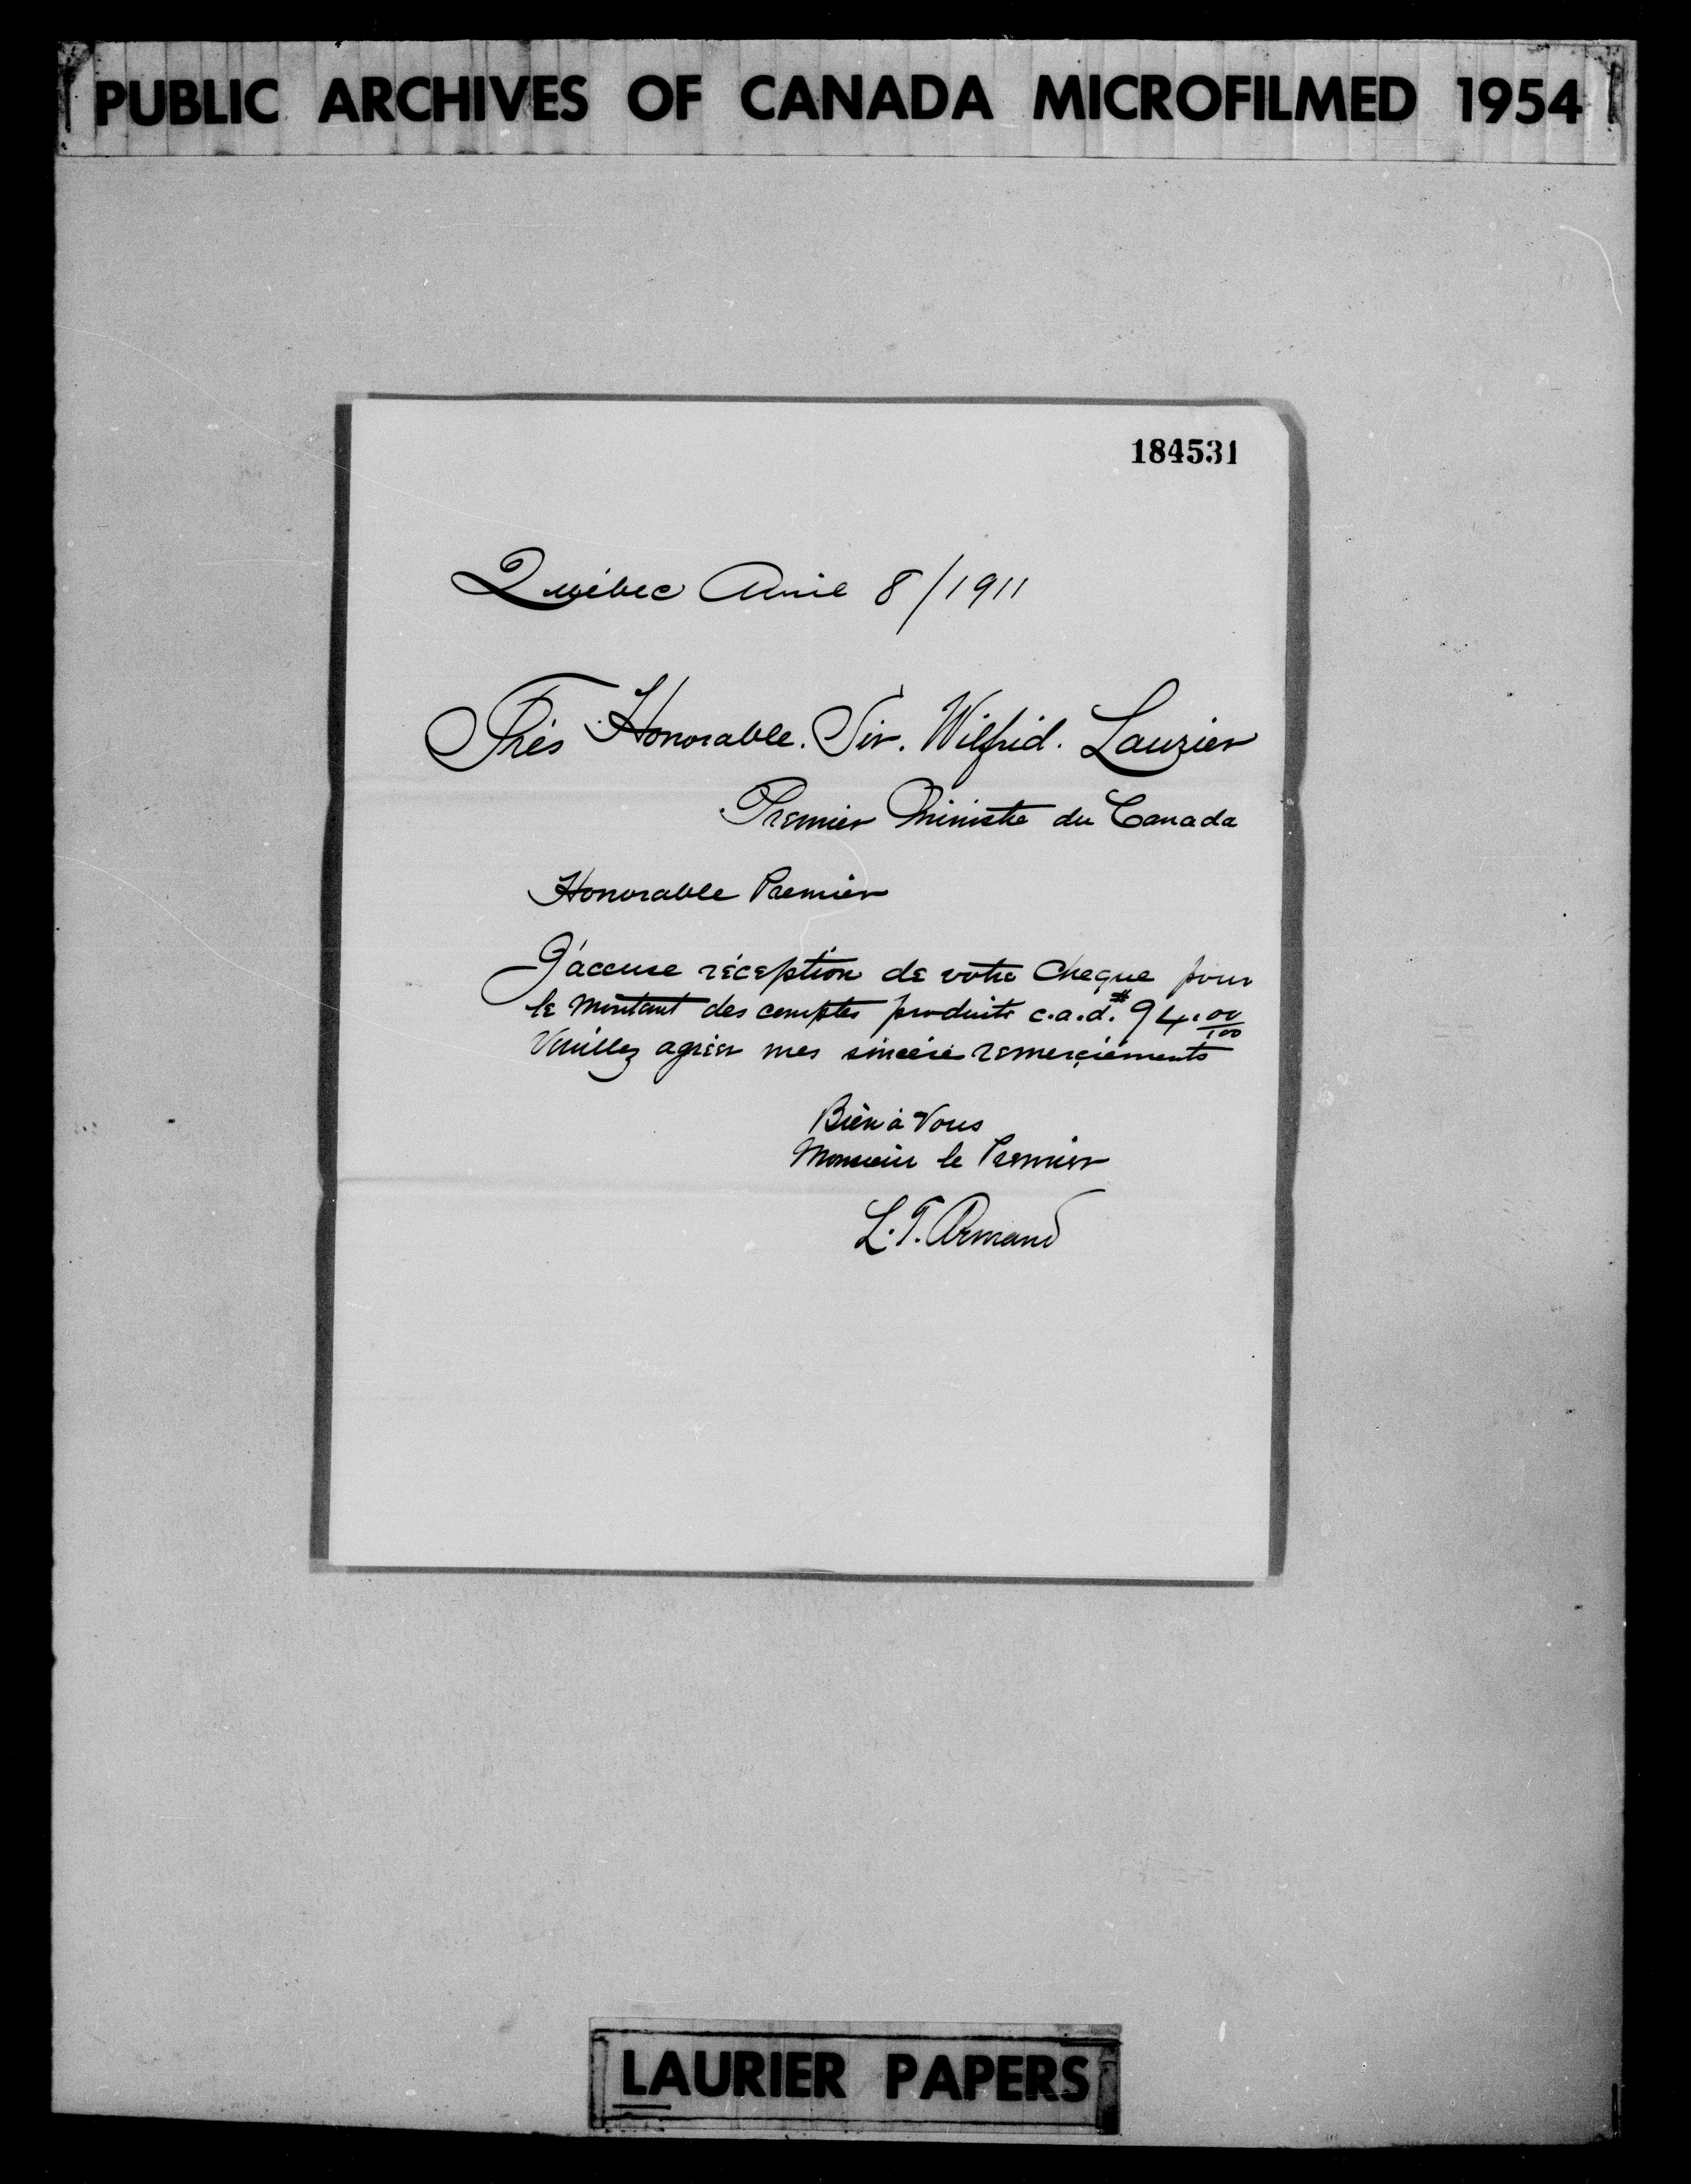 PUBLIC ARCHIVES OF CANADA MICROFILMED 1954
184531
Québec Avril 8/1911
Très Honorable. Sir. Wilfrid. Laurier
Premier Ministre du Canada
Honorable Premier
J'accuse réception de votre Cheque pour
le montant des comptes produits c.a.d. $94.00/100
Veuillez agréer mes sincère remerciements
Bien à Vous
Monsieur le Premier
L. T. Armand
LAURIER PAPERS